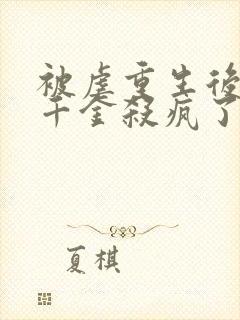 被虐重生後
千金殺瘋了
夏棋